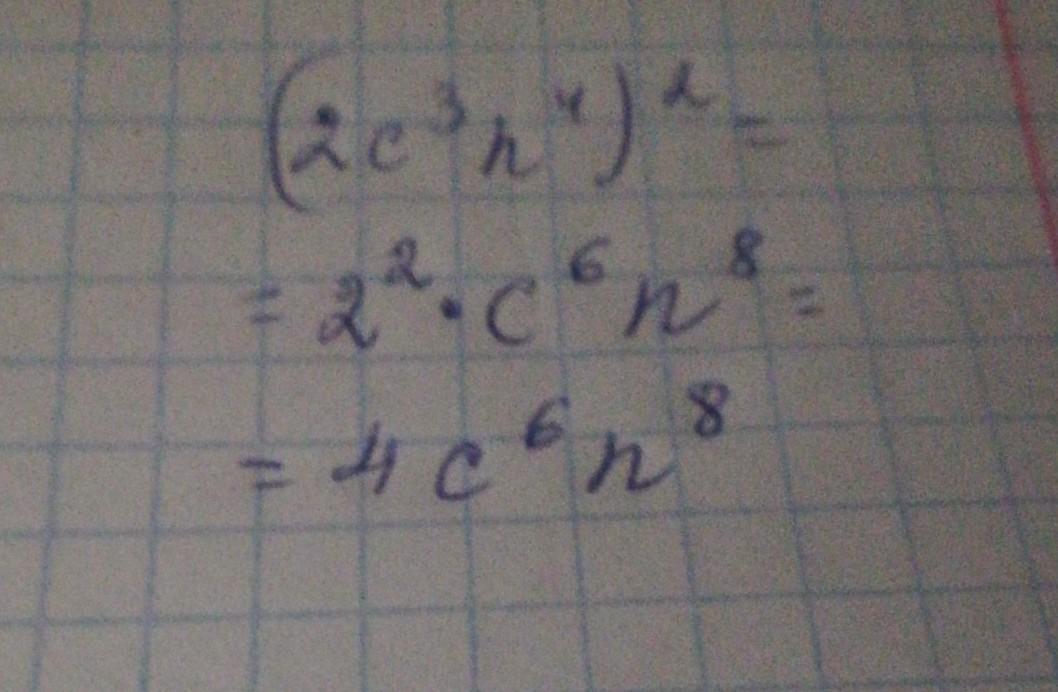 (2c³n⁴)² =
= 2² · c⁶n⁸ =
= 4c⁶n⁸